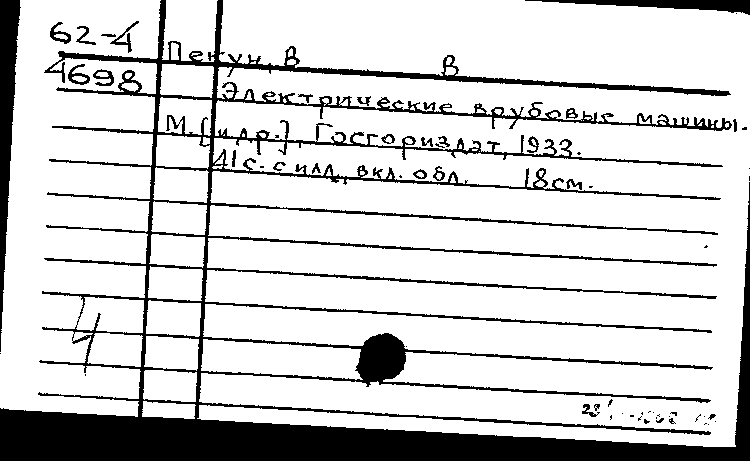 62-4
Пекун, В В
4698
Электрические врубовые машины.
М. [и др.], Госгориздат, 1933.
41 с. с илл., вкл. обл. 18 см.
4